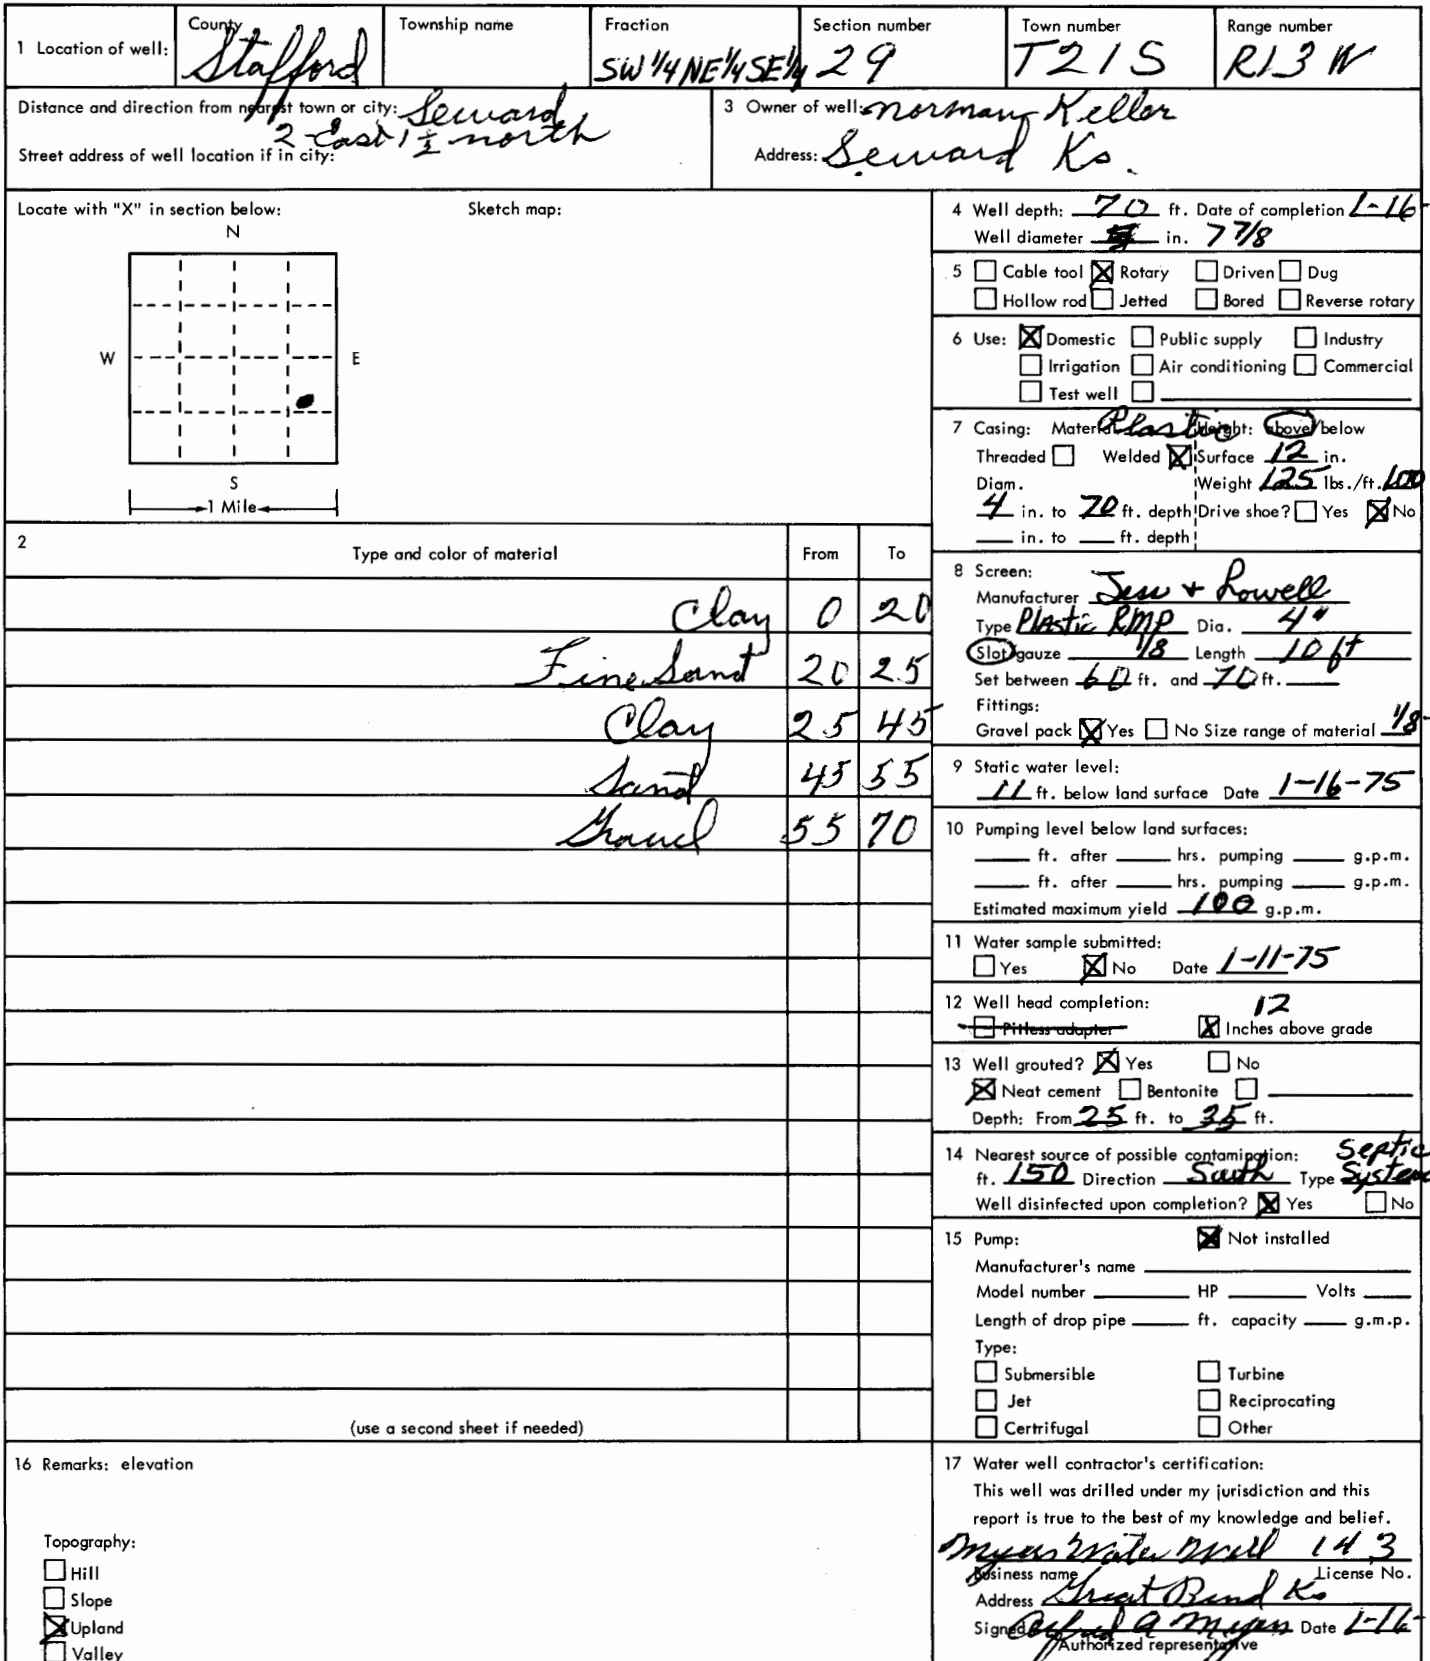 1 Location of well: County Stafford Township name Fraction SW 1/4 NE 1/4 SE 1/4 Section number 29 Town number T21S Range number R13W
Distance and direction from nearest town or city: Seward
2 East 1 1/2 north
Street address of well location if in city:
3 Owner of well: Norman Keller
Address: Seward Ks.
Locate with "X" in section below: Sketch map:
N
W E
S
1 Mile
2 Type and color of material From To
Clay 0 20
Fine Sand 20 25
Clay 25 45
Sand 45 55
Gravel 55 70
(use a second sheet if needed)
4 Well depth: 70 ft. Date of completion 1-16-
Well diameter in. 7 7/8
5 Cable tool Rotary Driven Dug
Hollow rod Jetted Bored Reverse rotary
6 Use: Domestic Public supply Industry
Irrigation Air conditioning Commercial
Test well
7 Casing: Material Plastic Height: above/below
Threaded Welded Surface 12 in.
Diam. Weight 125 lbs./ft. 100
4 in. to 70 ft. depth Drive shoe? Yes No
in. to ft. depth
8 Screen:
Manufacturer Jess + Lowell
Type Plastic RMP Dia. 4"
Slot/gauze 1/8 Length 10 ft
Set between 60 ft. and 70 ft.
Fittings:
Gravel pack Yes No Size range of material 1/8-
9 Static water level:
11 ft. below land surface Date 1-16-75
10 Pumping level below land surfaces:
ft. after hrs. pumping g.p.m.
ft. after hrs. pumping g.p.m.
Estimated maximum yield 100 g.p.m.
11 Water sample submitted:
Yes No Date 1-11-75
12 Well head completion: 12
Pitless adapter Inches above grade
13 Well grouted? Yes No
Neat cement Bentonite
Depth: From 25 ft. to 35 ft.
14 Nearest source of possible contamination: Septic
ft. 150 Direction South Type System
Well disinfected upon completion? Yes No
15 Pump: Not installed
Manufacturer's name
Model number HP Volts
Length of drop pipe ft. capacity g.m.p.
Type:
Submersible Turbine
Jet Reciprocating
Certrifugal Other
16 Remarks: elevation
Topography:
Hill
Slope
Upland
Valley
17 Water well contractor's certification:
This well was drilled under my jurisdiction and this
report is true to the best of my knowledge and belief.
Myers Water Well 143
Business name License No.
Address Great Bend Ks
Signed Alfred A Myers Date 1-16-
Authorized representative